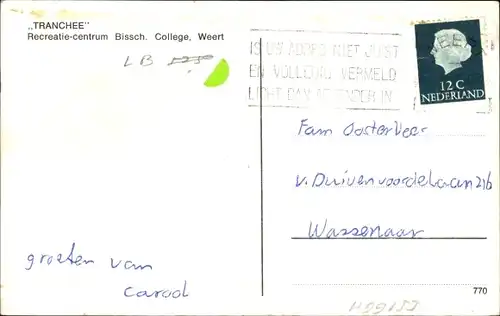 „TRANCHEE"
Recreatie-centrum Bissch. College, Weert
LB
IS UW ADRES NIET JUIST
EN VOLLEDIG VERMELD
LICHT DAN AFZENDER IN
12 C
NEDERLAND
Fam Oosterveer
v. Duivenvoordelaan 216
Wassenaar
groeten van
Carool
770